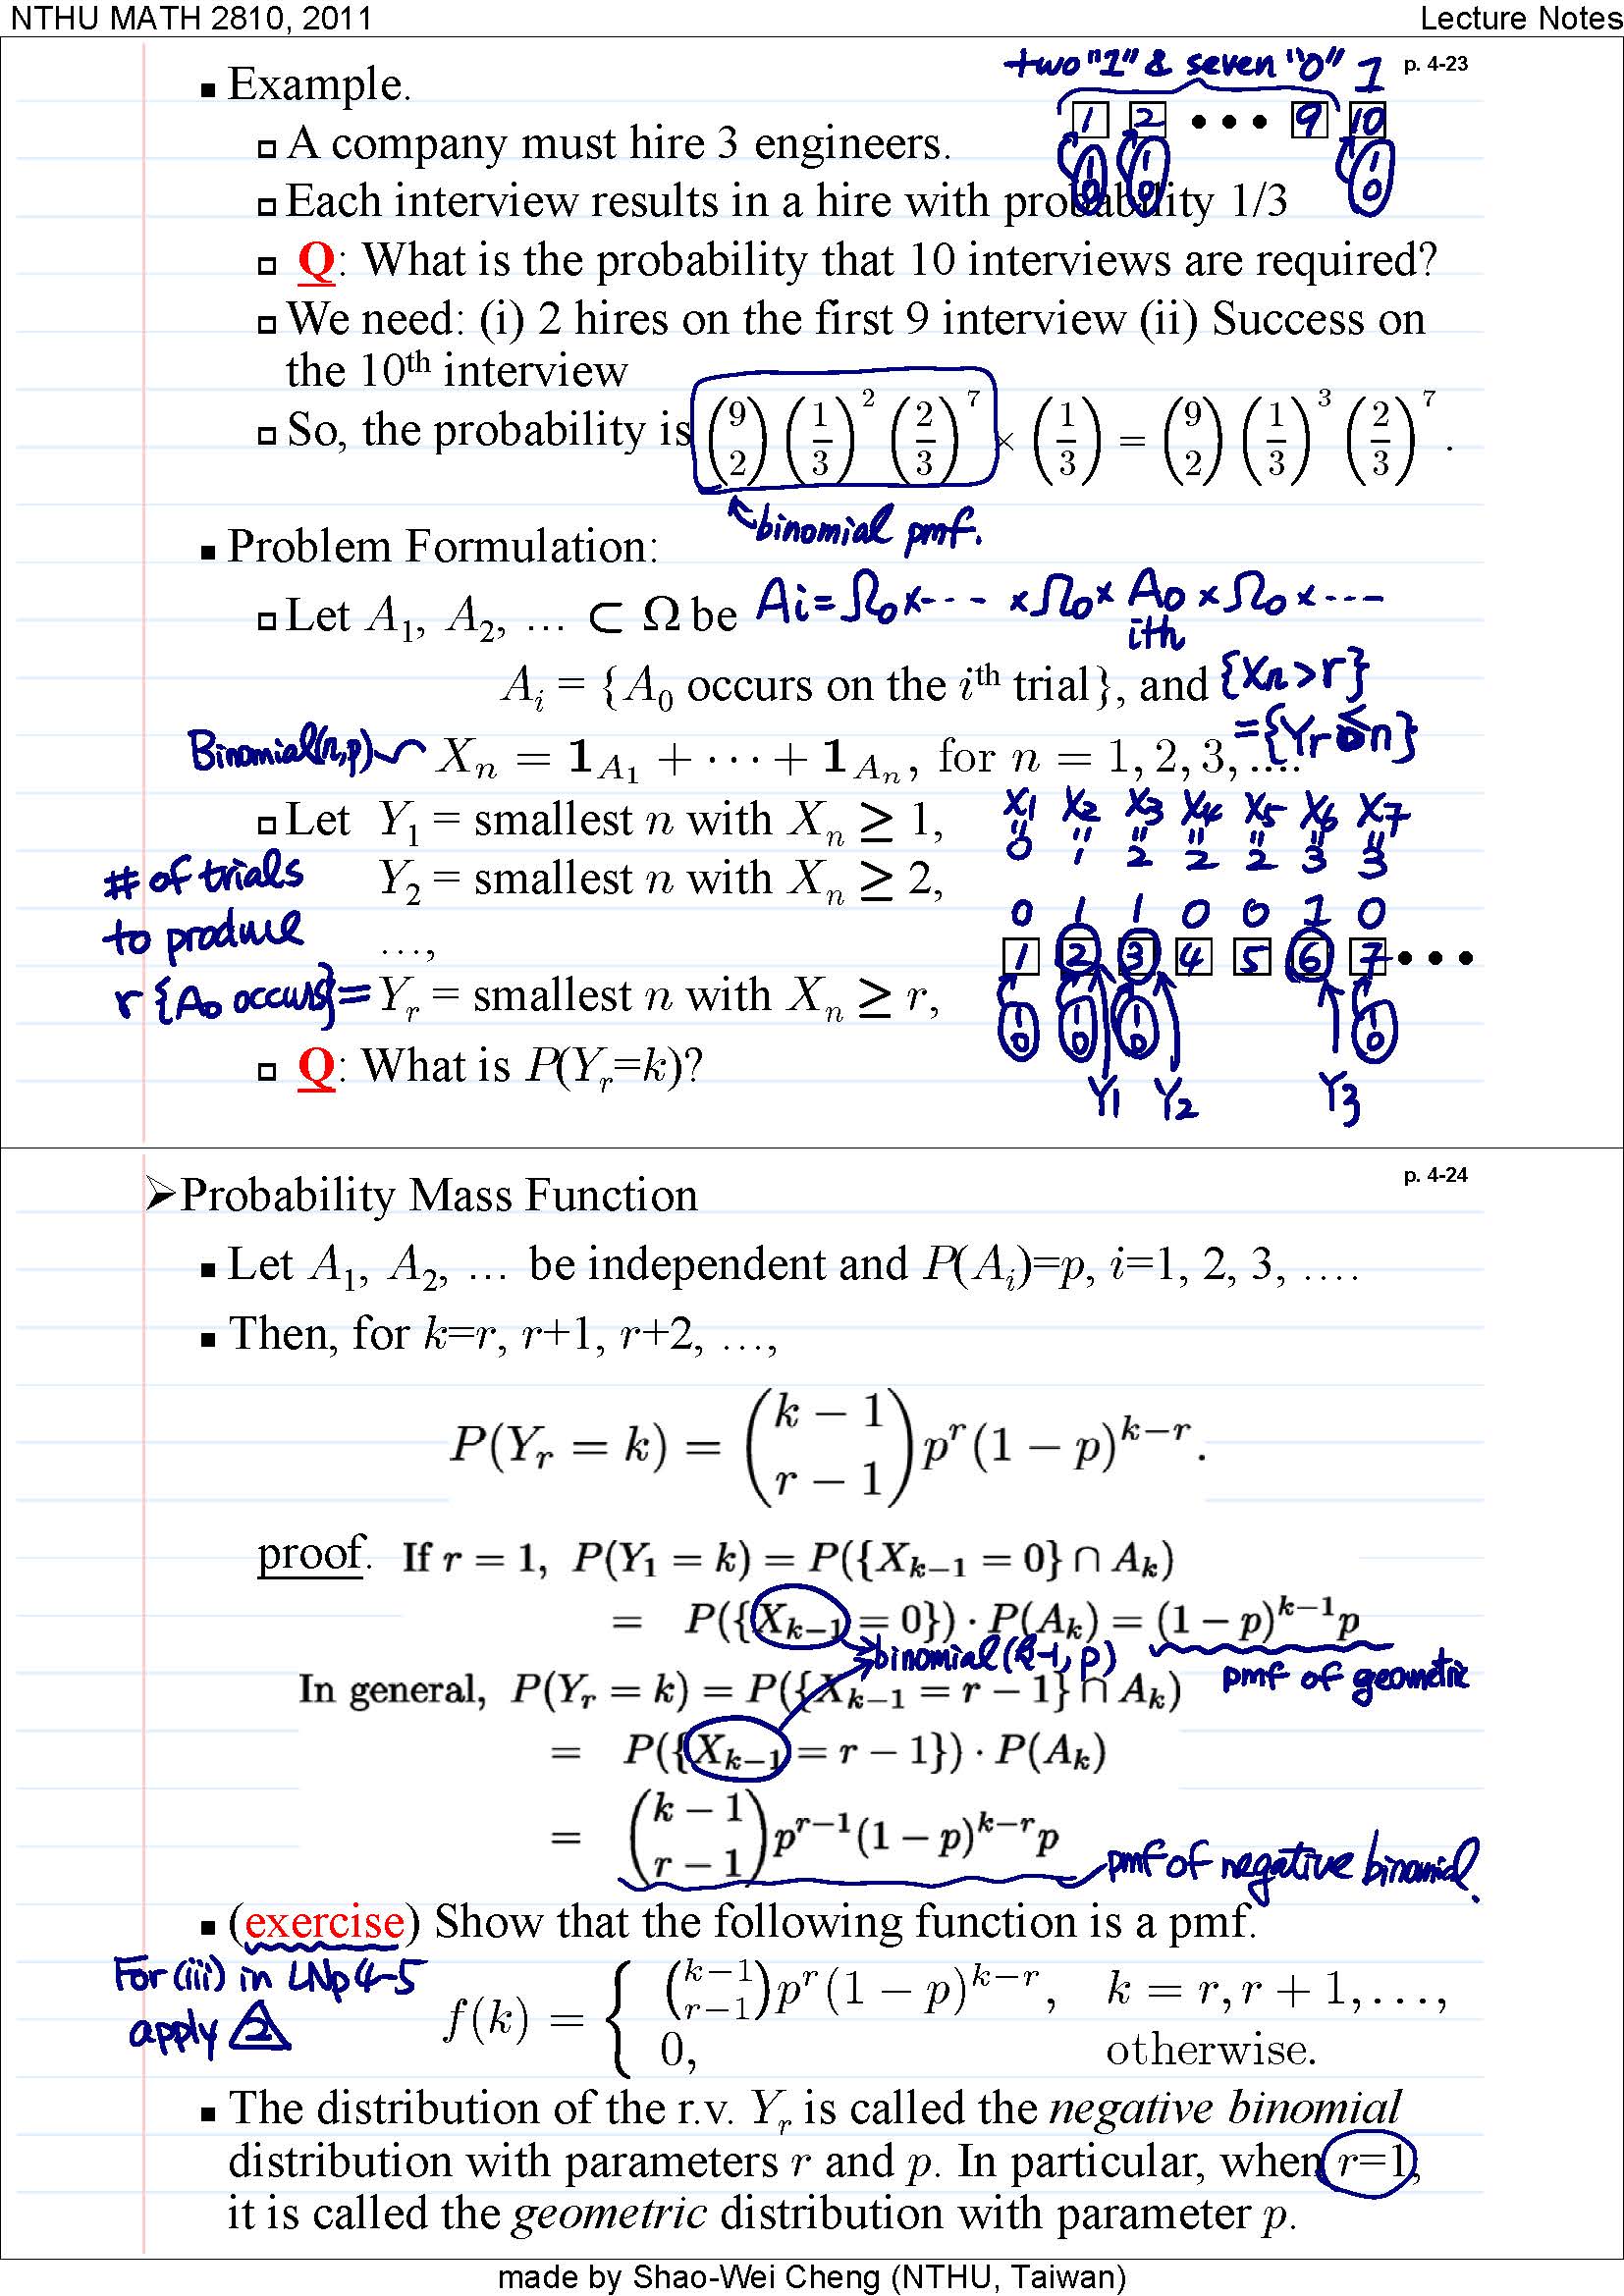 NTHU MATH 2810, 2011 Lecture Notes
p. 4-23
two "1" & seven "0" 1
▪ Example.
1 2 • • • 9 10
1 1 1
0 0 0
▫ A company must hire 3 engineers.
▫ Each interview results in a hire with probability 1/3
▫ Q: What is the probability that 10 interviews are required?
▫ We need: (i) 2 hires on the first 9 interview (ii) Success on
the 10th interview
▫ So, the probability is (9 2) (1/3)^2 (2/3)^7 × (1/3) = (9 2) (1/3)^3 (2/3)^7 .
binomial pmf.
▪ Problem Formulation:
▫ Let A_1, A_2, … ⊂ Ω be Ai = Ω0 x --- x Ω0 x A0 x Ω0 x ---
ith
A_i = {A_0 occurs on the i^th trial}, and {Xn > r}
= {Yr ≤ n}
Binomial(n,p) ~ X_n = 1_{A_1} + ··· + 1_{A_n}, for n = 1, 2, 3, ….
▫ Let Y_1 = smallest n with X_n ≥ 1,
X1 X2 X3 X4 X5 X6 X7
" " " " " " "
0 1 2 2 2 3 3
# of trials
Y_2 = smallest n with X_n ≥ 2,
to produce
0 1 1 0 0 1 0
…,
1 2 3 4 5 6 7 • • •
r {A0 occurs} = Y_r = smallest n with X_n ≥ r,
1 1 1 1
0 0 0 0
▫ Q: What is P(Y_r=k)?
Y1 Y2 Y3
p. 4-24
➢Probability Mass Function
▪ Let A_1, A_2, … be independent and P(A_i)=p, i=1, 2, 3, ….
▪ Then, for k=r, r+1, r+2, …,
P(Y_r = k) = (k − 1 r − 1) p^r (1 − p)^{k−r}.
proof. If r = 1, P(Y_1 = k) = P({X_{k−1} = 0} ∩ A_k)
= P({X_{k−1} = 0}) · P(A_k) = (1 − p)^{k−1}p
binomial(k-1, p)
pmf of geometric
In general, P(Y_r = k) = P({X_{k−1} = r − 1} ∩ A_k)
= P({X_{k−1} = r − 1}) · P(A_k)
= (k − 1 r − 1) p^{r−1}(1 − p)^{k−r}p
pmf of negative binomial.
▪ (exercise) Show that the following function is a pmf.
For (iii) in LNp4-5
apply 2
f(k) = { (k−1 r−1) p^r (1 − p)^{k−r}, k = r, r + 1, …,
0, otherwise.
▪ The distribution of the r.v. Y_r is called the negative binomial
distribution with parameters r and p. In particular, when r=1,
it is called the geometric distribution with parameter p.
made by Shao-Wei Cheng (NTHU, Taiwan)